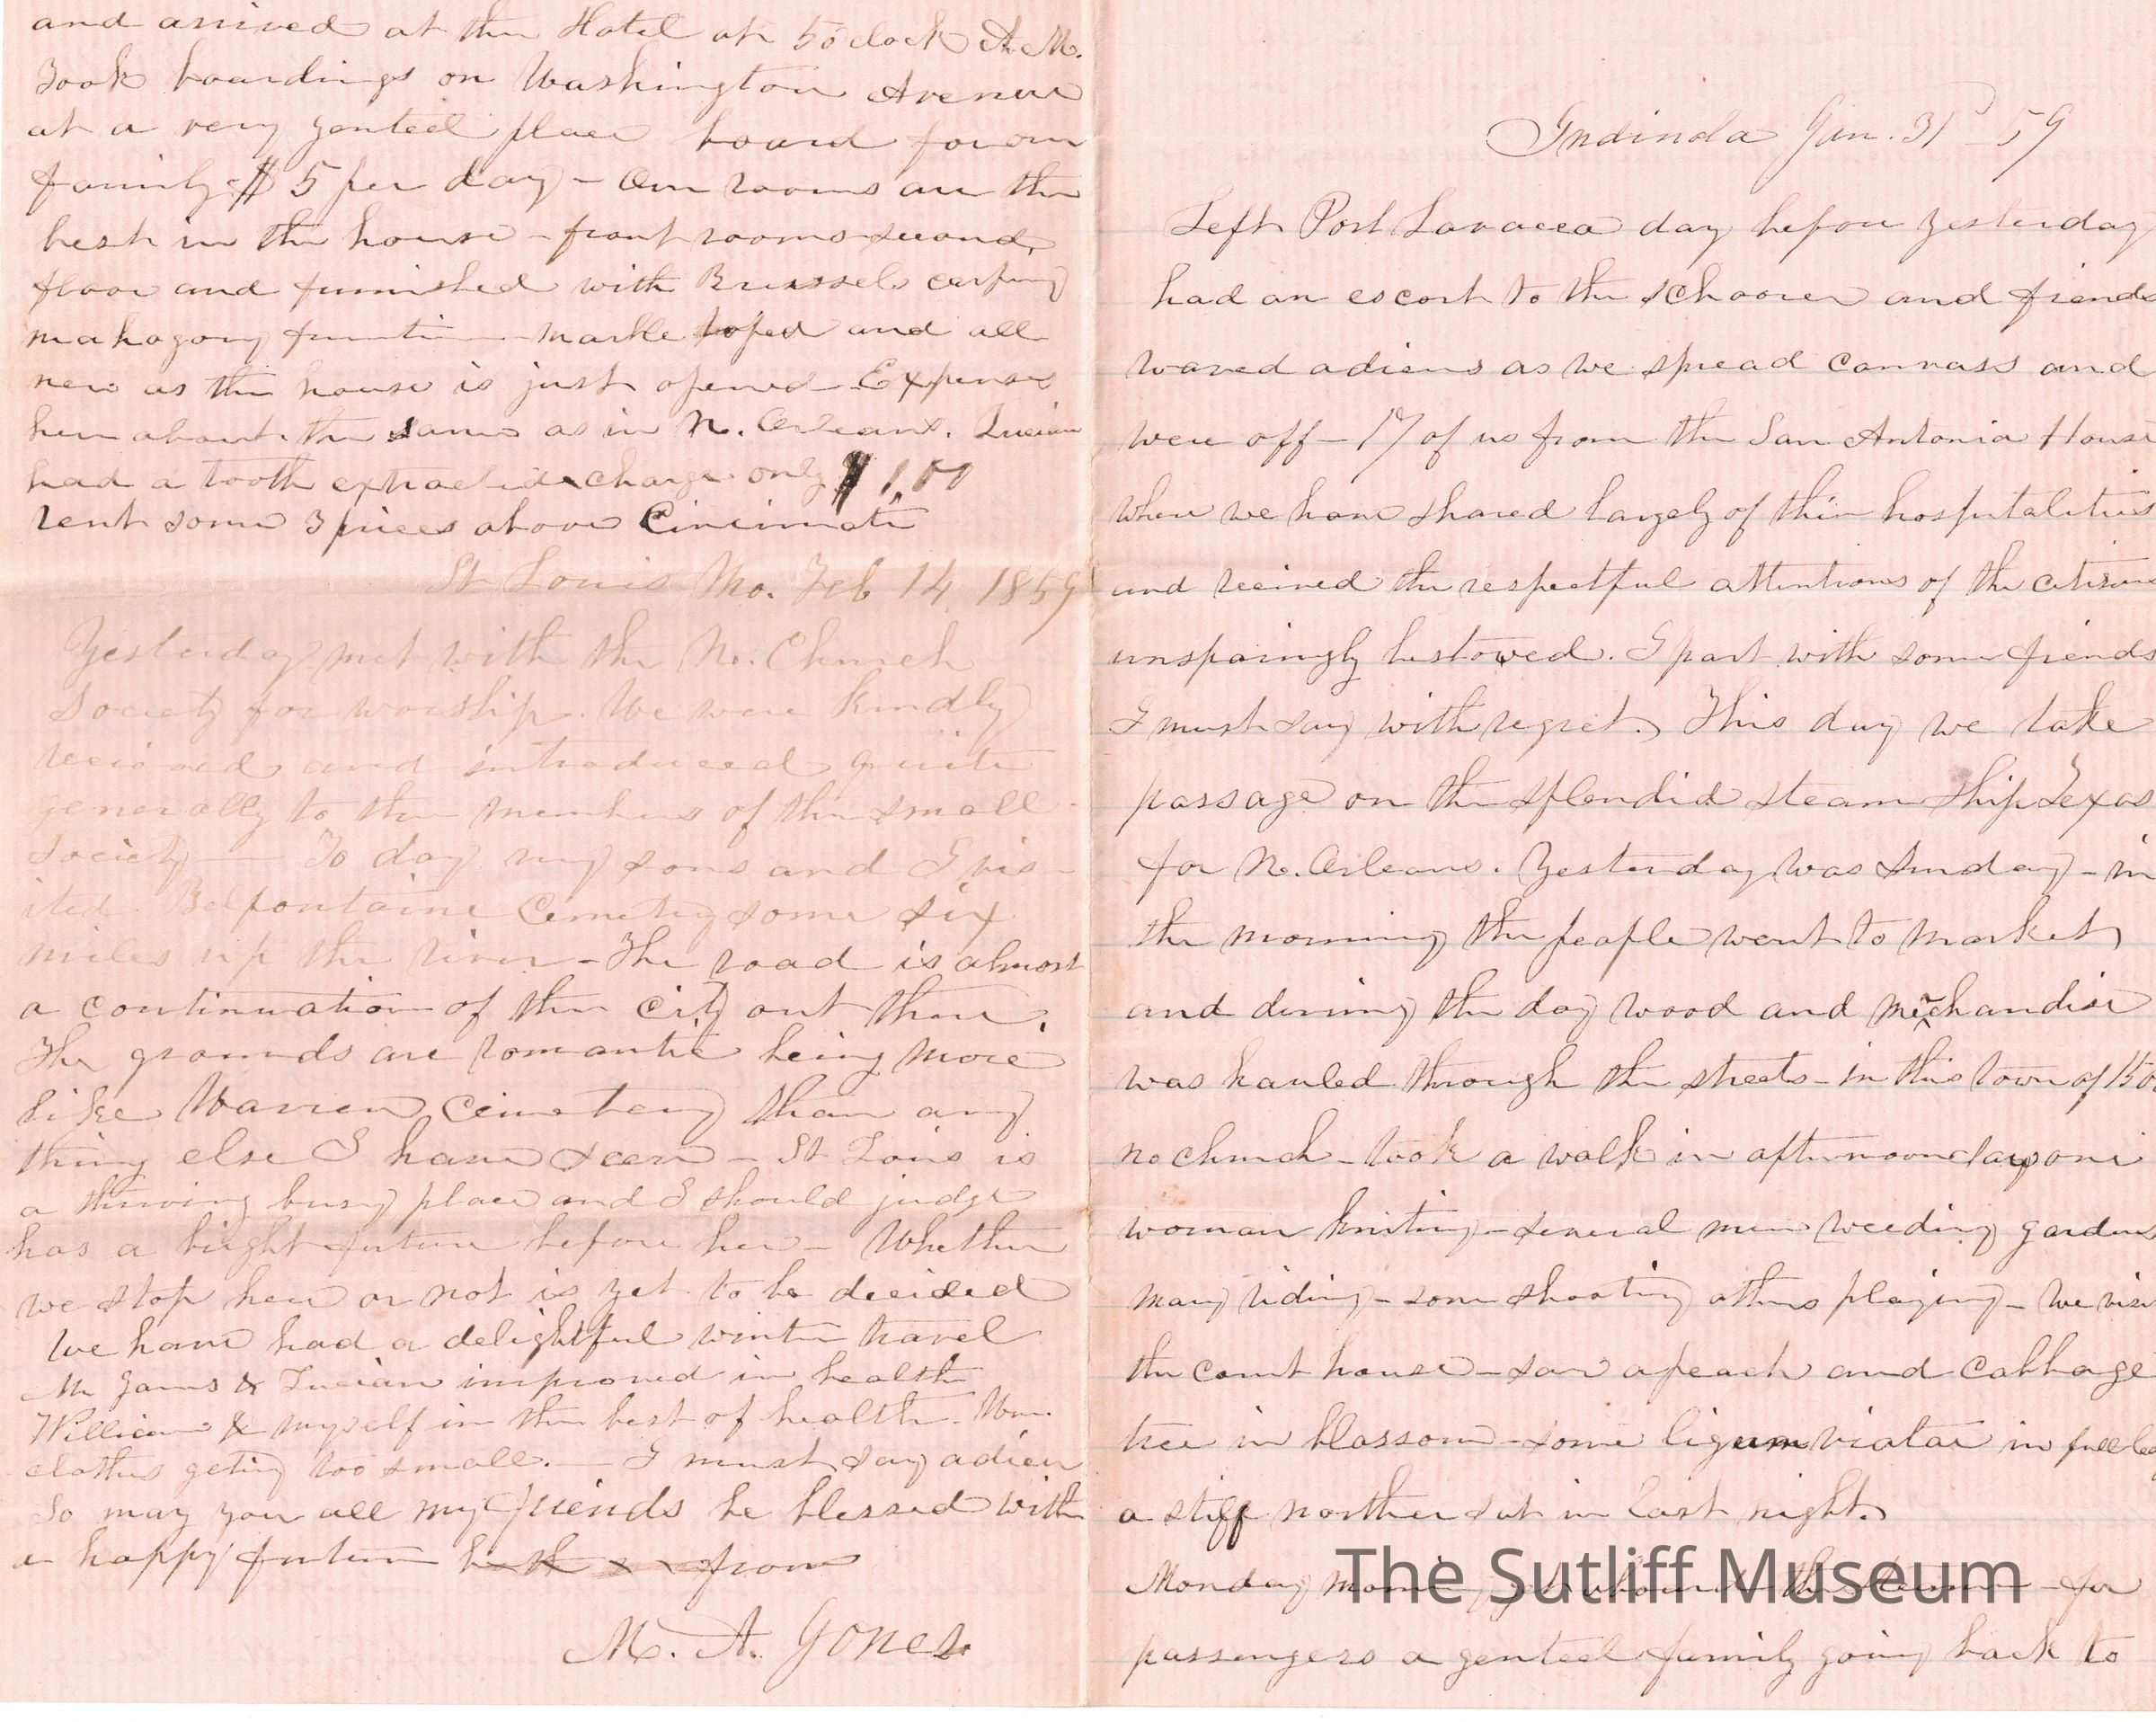 and arrived at the Hotel at 5 oclock A.M.
Took boardings on Washington Avenue
at a very genteel place board for our
family $5 per day - Our rooms are the
best in the house - front rooms second
floor and furnished with Brussels carping
mahogony - marble toped and all
new as the house is just opened - Expenses
here about the same as in N. Orleans. Lucian
had a tooth extracted charge only $1,00
rent some 3 prices above Cincinnati
St Louis Mo. Feb 14 1859
Yesterday met with the N. Church
Society for worship. We were kindly
recieved and introduced quite
generally to the members of the small
society - To day my sons and I vis-
ited Belfontaine Cemetey some six
miles up the river - The road is almost
a continuation of the city out there.
The grounds are romantic being more
like Warren Cemetery than any
thing else I have seen - St Louis is
a thriving busy place and I should judge
has a bright future before her - Whether
we stop here or not is yet to be decided
We have had a delightful winter travel
Mr Jones & Lucian improved in health
William & myself in the best of health. Wm.
clothes geting too small. - I must say adieu
So may you all my friends be blessed with
a happy future from
M. A. Jones
Indinola Jan. 31 - 59
Left Port Lavacca day before yesterday
had an escort to the schooner and friends
waved adieus as we spread canvass and
were off - 17 of us from the San Antonia House
where we have shared largely of their hospitalities
and recieved the respectful attentions of the citizens
unsparingly bestowed. I part with some friends
I must say with regret. This day we take
passage on the splendid steam ship Texas
for N. Orleans. Yesterday was Sunday - in
the morning the people went to market
and during the day wood and merchandise
was hauled through the streets - in this town of
no church - took a walk in afternoon saw one
woman kniting - several men weeding gardens
many riding - some shooting others playing - We
the court house - saw a peach and cabbage
tree in blossom - some ligum viatae in full
a stiff norther sat in last night.
Monday morning the - for
passengers a genteel family going back to
The Sutliff Museum